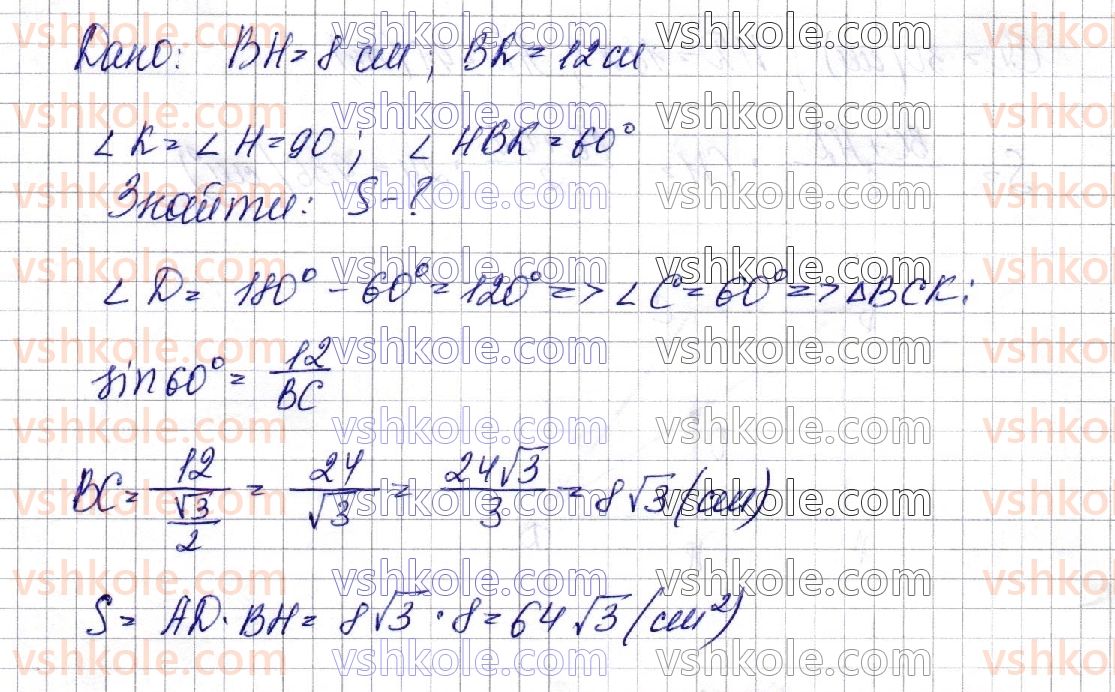 Дано: BH = 8 см; BK = 12 см
∠K = ∠H = 90; ∠HBK = 60°
Знайти: S - ?
∠D = 180° - 60° = 120° => ∠C = 60° => ΔBCK:
sin 60° = 12/BC
BC = 12/(√3/2) = 24/√3 = 24√3/3 = 8√3 (см)
S = AD · BH = 8√3 · 8 = 64√3 (см²)
vshkole.com